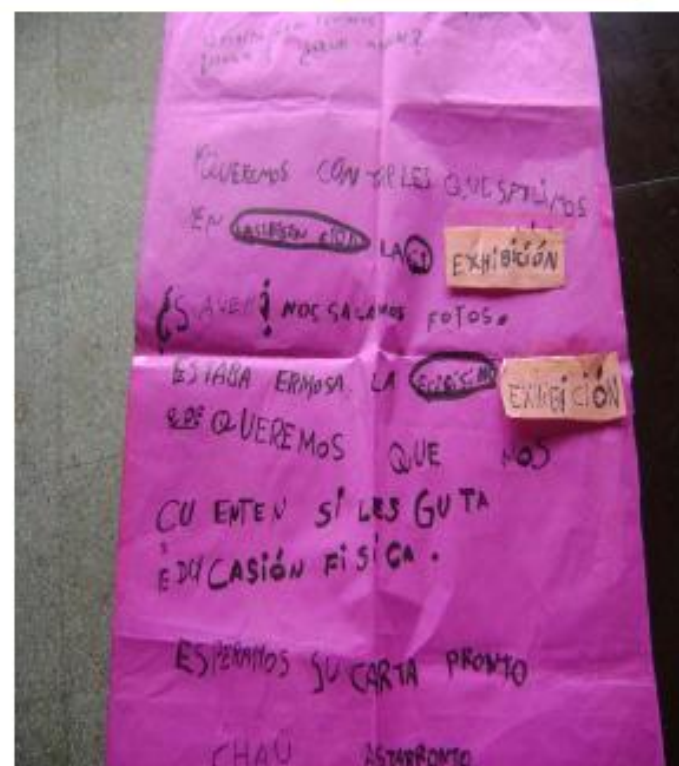 QUEREMOS CONTARLES QUE SALIMOS
EN LA EXHIBICIÓN
¿SAVEN? NOS SACAMOS FOTOS.
ESTABA ERMOSA LA EXHIBICIÓN
QUEREMOS QUE NOS
CUENTEN SI LES GUTA
EDUCASIÓN FISICA.
ESPERAMOS SU CARTA PRONTO
CHAU ASTAPRONTO